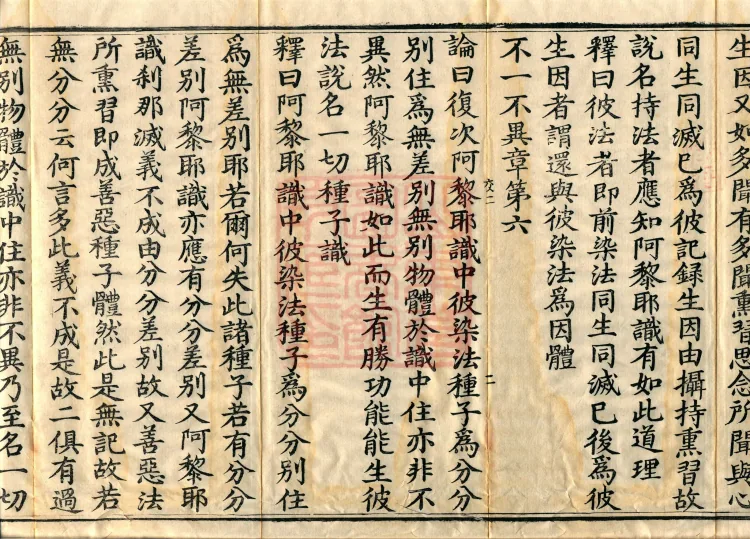 生因又如多聞有多聞熏習思念所聞與心
同生同滅已為彼記録生因由攝持熏習故
說名持法者應知阿黎耶識有如此道理
釋曰彼法者即前染法同生同滅已後為彼
生因者謂還與彼染法為因體
不一不異章第六
論曰復次阿黎耶識中彼染法種子為分分
別住為無差別無別物體於識中住亦非不
異然阿黎耶識如此而生有勝功能能生彼
法說名一切種子識
釋曰阿黎耶識中彼染法種子為分分別住
為無差別耶若爾何失此諸種子若有分分
差別阿黎耶識亦應有分分差別又阿黎耶
識刹那滅義不成由分分差別故又善惡法
所熏習即成善惡種子體然此是無記故若
無分分云何言多此義不成是故二俱有過
無別物體於識中住亦非不異乃至名一切